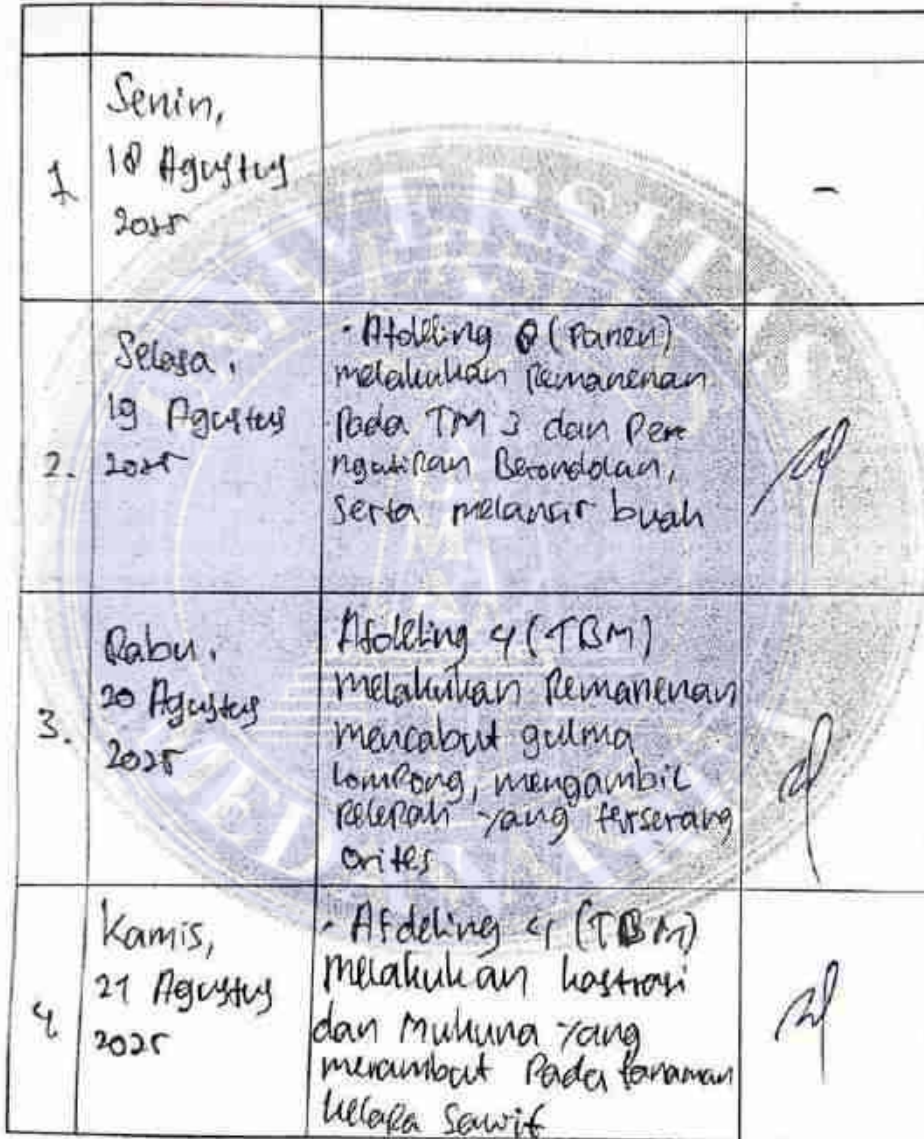 1
Senin,
18 Agustus
2025
-
2.
Selasa,
19 Agustus
2025
· Afdeling 8 (Panen)
melakukan Pemanenan
Pada TM 3 dan Pe
ngutipan Berondolan,
serta melansir buah
3.
Rabu,
20 Agustus
2025
Afdeling 4 (TBM)
melakukan Pemanenan
mencabut gulma
lompong, mengambil
pelepah yang terserang
orites
4
Kamis,
21 Agustus
2025
· Afdeling 4 (TBM)
Melakukan kastrasi
dan Mukuna yang
merambat Pada tanaman
kelapa Sawit
UNIVERSITAS
MEDAN AREA